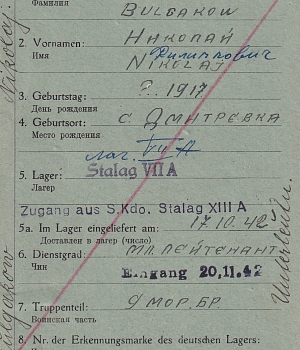 Фамилия
BULGAKOW
2. Vornamen: НИКОЛАЙ
Имя Филиппович
NIKOLAJ
3. Geburtstag: ?. 1917
День рождения
4. Geburtsort: С. ДМИТРЕВКА
Место рождения
лаг. VII A
5. Lager: Stalag VII A
Лагер
Zugang aus S.Kdo. Stalag XIII A
5a. Im Lager eingeliefert am: 17.10.42
Доставлен в лагер (число)
6. Dienstgrad: МЛ. ЛЕЙТЕНАНТ
Чин
Eingang 20.11.42
7. Truppenteil: 9 МОР. БР.
Воинская часть
8. Nr. der Erkennungsmarke des deutschen Lagers:
Nikolej.
Bulgakow